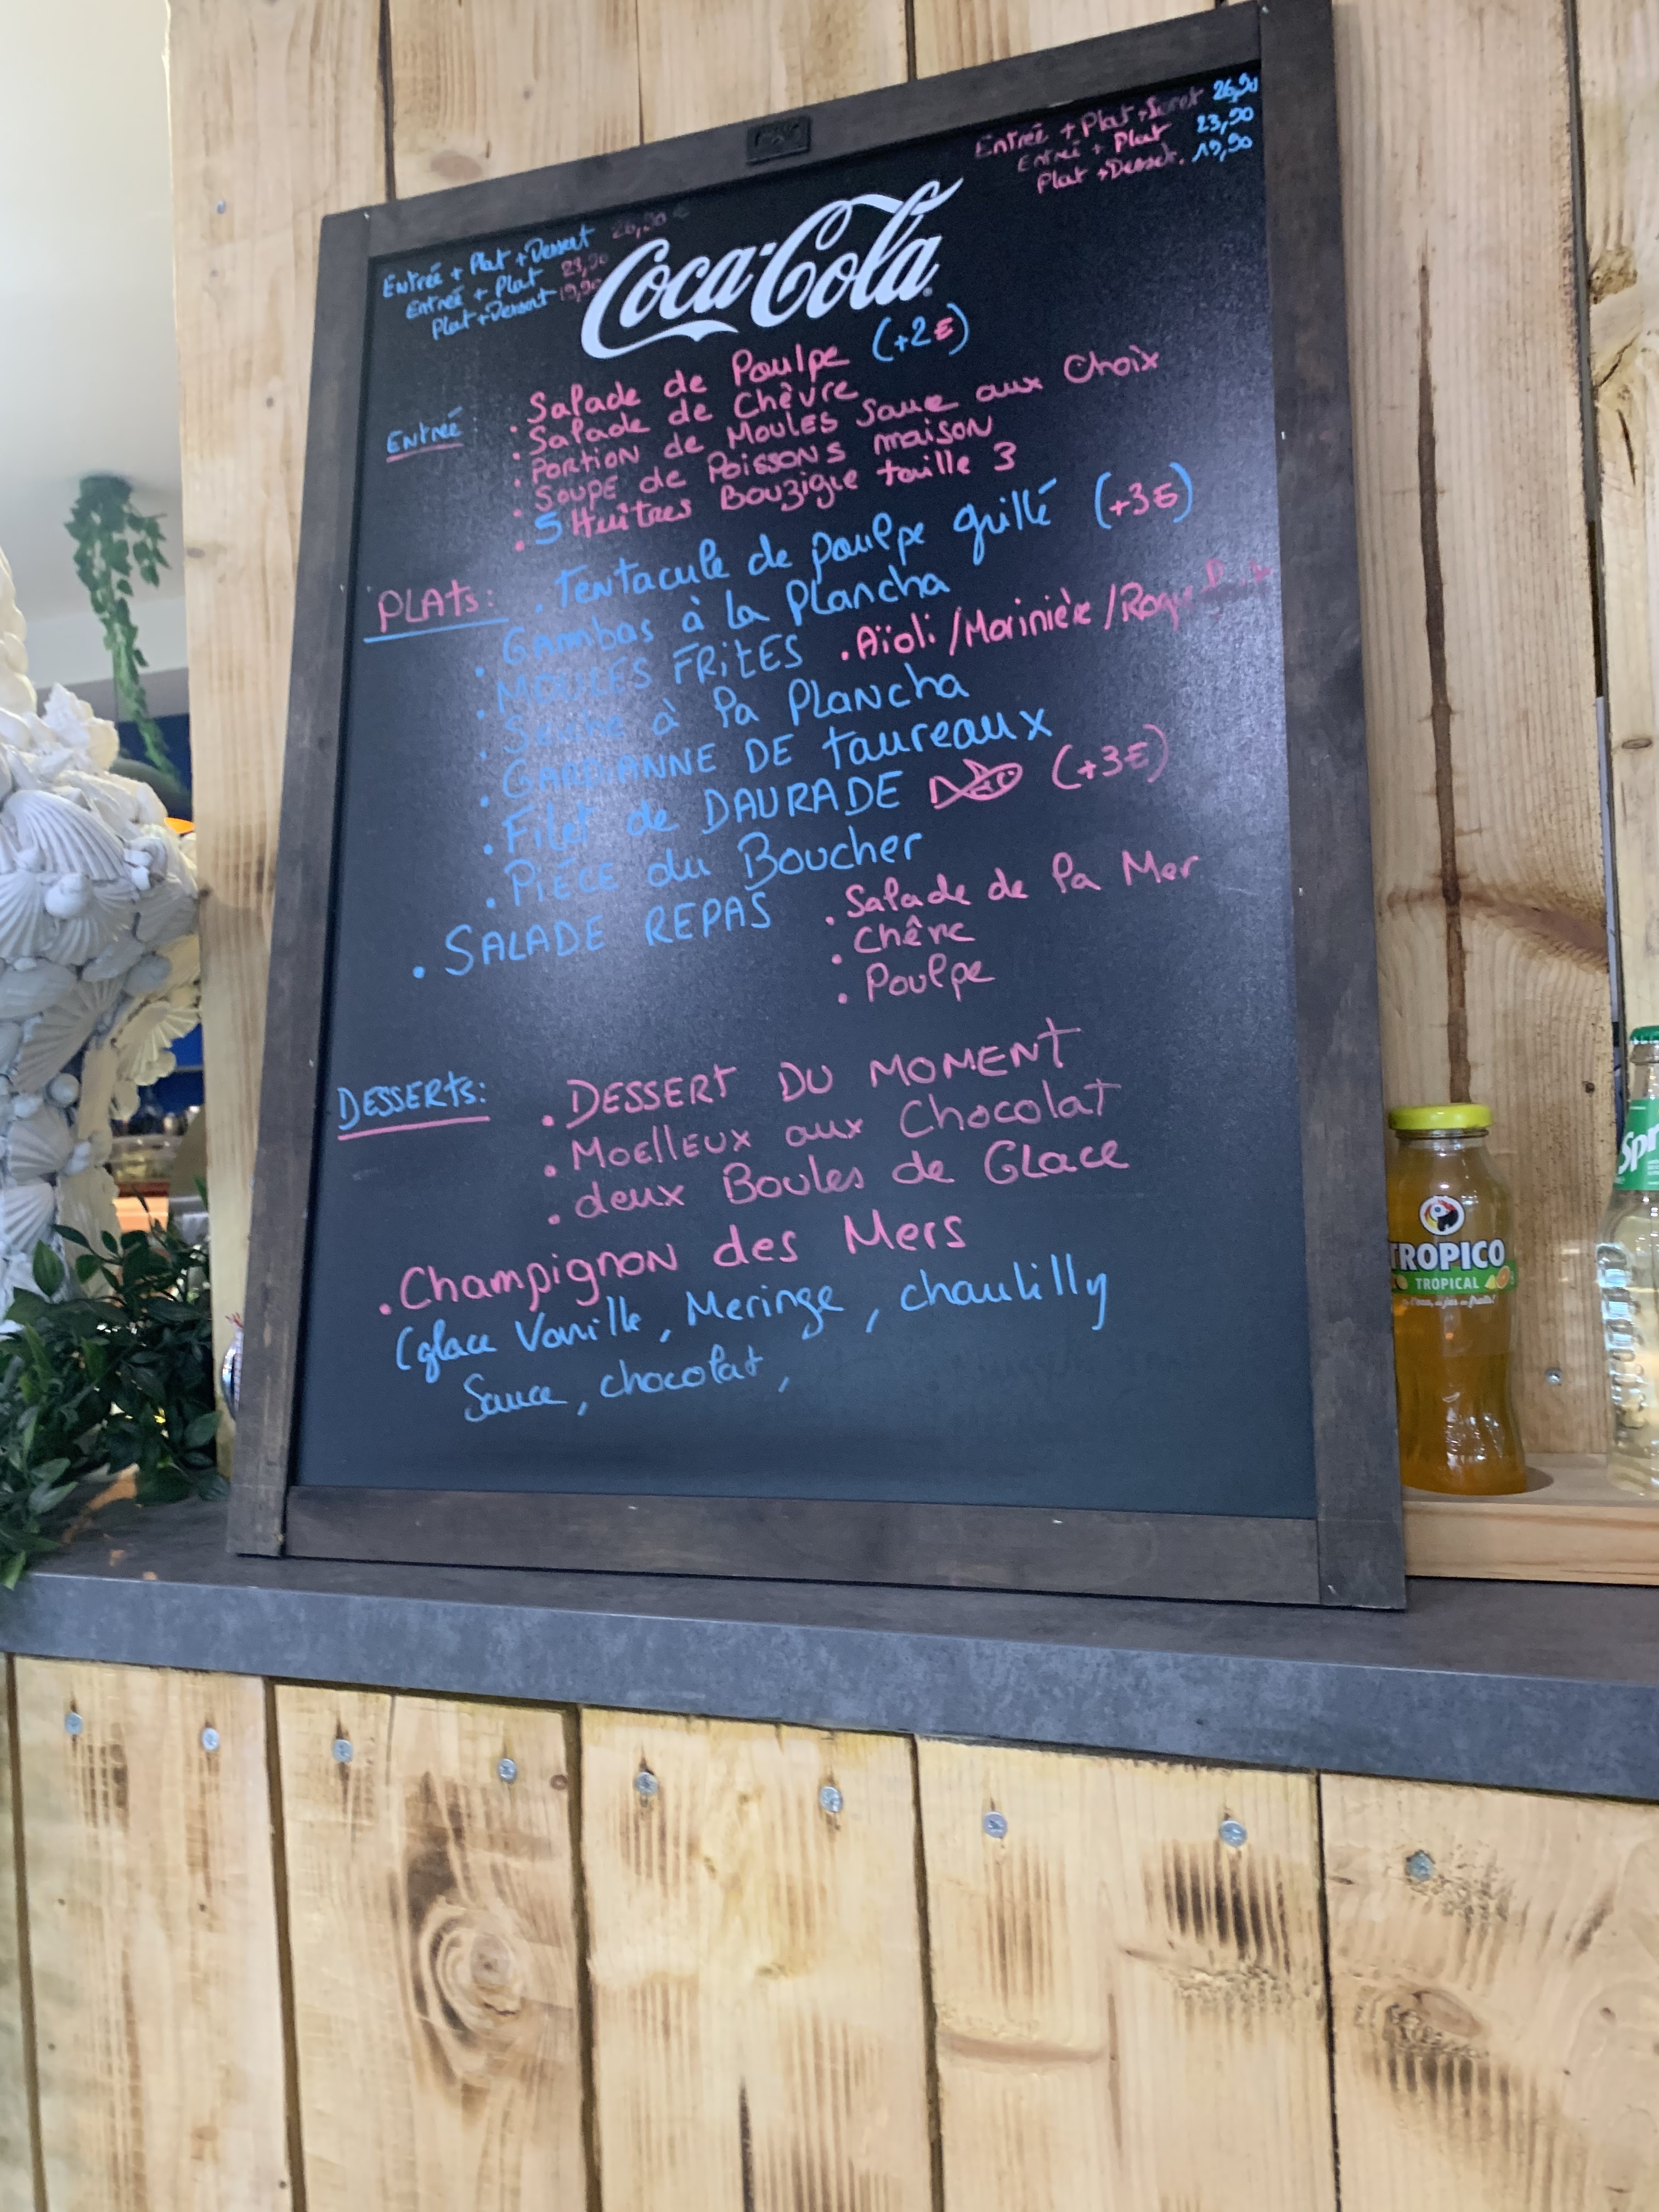 Entrée + Plat + Dessert 26,90 €
Entrée + Plat 23,90
Plat + Dessert 19,90
Entrée + Plat + 26,90
Entrée + Plat 23,90
Plat + Dessert. 19,90
Coca-Cola
Entrée :
. Salade de Poulpe (+2€)
. Salade de Chèvre
. Portion de Moules Sauce aux Choix
. Soupe de Poissons maison
. 5 Huitres Bouzigue taille 3
PLAts :
. Tentacule de poulpe grillé (+3€)
. Gambas à la Plancha
. MOULES FRITES . Aïoli / Marinière /
. à la Plancha
. GARDIANNE DE taureaux
. Filet de DAURADE (+3€)
. PIÉCE du Boucher
. SALADE REPAS
. Salade de la Mer
. Chêvre
. Poulpe
DESSERtS :
. DESSERT DU MOMENT
. MOElleux aux Chocolat
. deux Boules de Glace
. Champignon des Mers
(glace Vanille, Meringe, chantilly
Sauce, chocolat,
TROPICO
TROPICAL